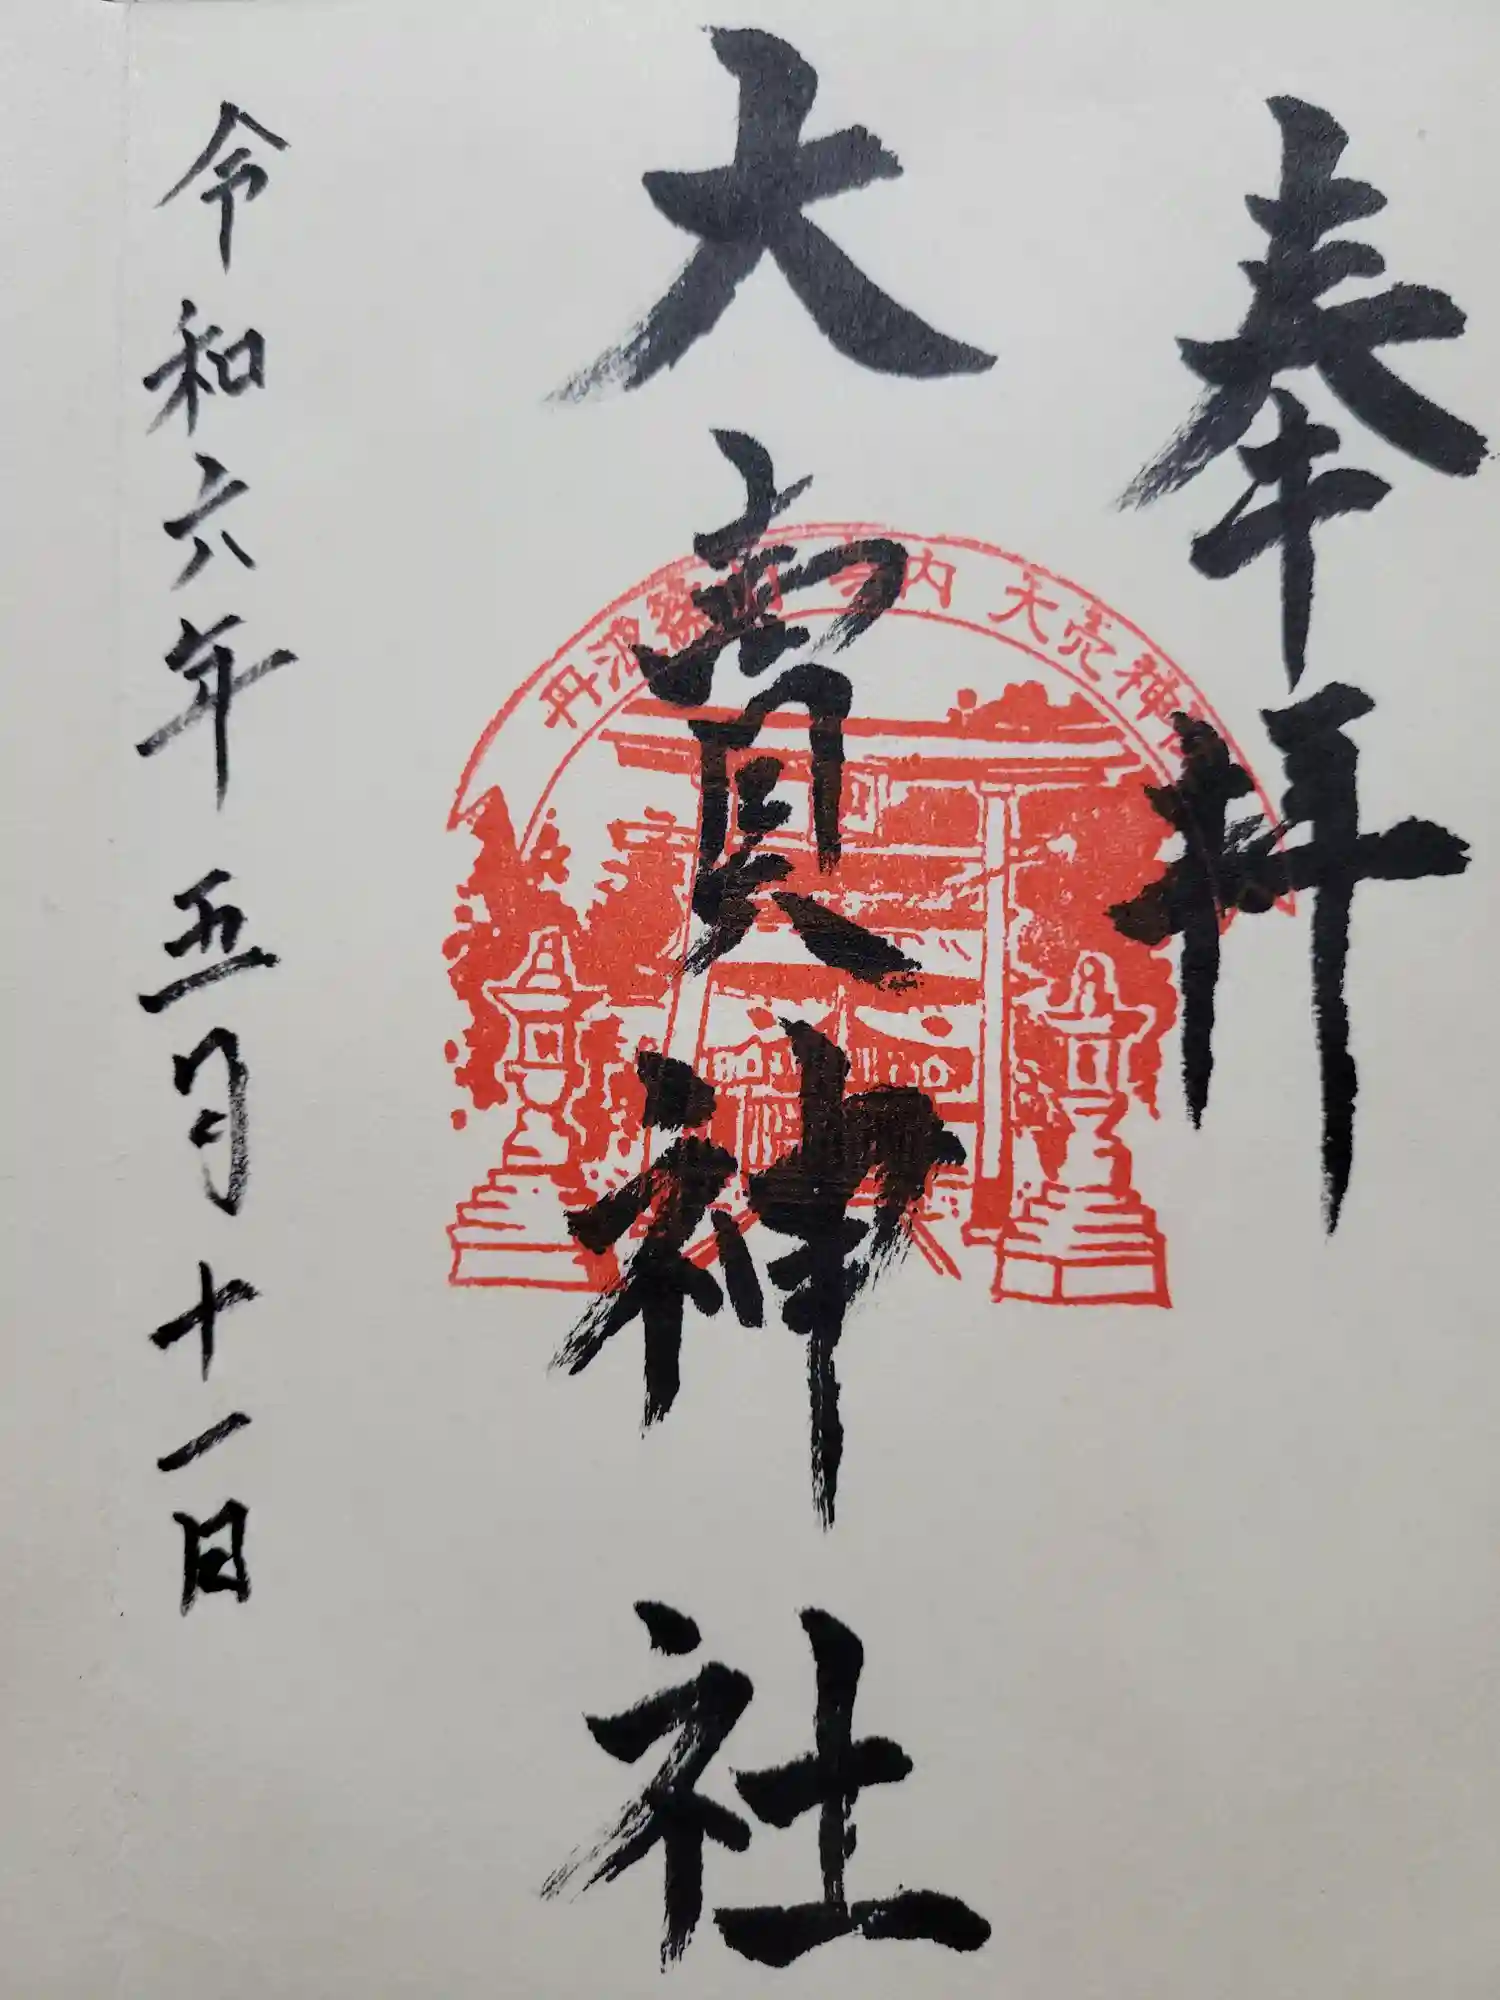 奉拝
大賣神社
丹波篠山 寺内 大売神社
令和六年五月十一日